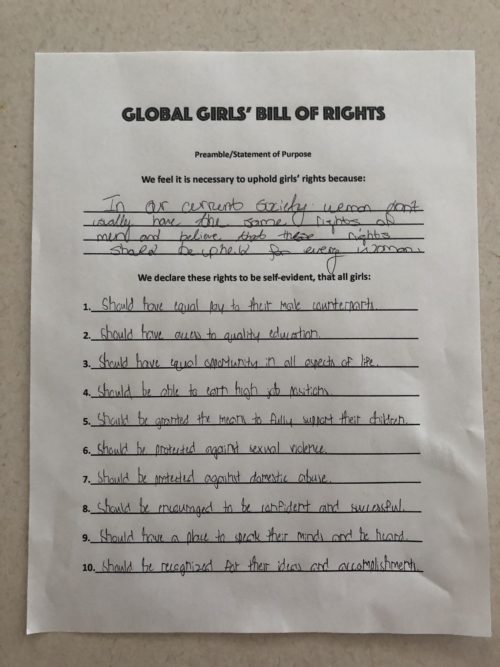 GLOBAL GIRLS' BILL OF RIGHTS
Preamble/Statement of Purpose
We feel it is necessary to uphold girls' rights because:
In our current society women don't
usually have the same rights of
men and believe that these rights
should be upheld for every woman.
We declare these rights to be self-evident, that all girls:
1. Should have equal pay to their male counterparts.
2. Should have access to quality education.
3. Should have equal opportunity in all aspects of life.
4. Should be able to earn high job positions.
5. Should be granted the means to fully support their children.
6. Should be protected against sexual violence.
7. Should be protected against domestic abuse.
8. Should be encouraged to be confident and successful.
9. Should have a place to speak their minds and be heard.
10. Should be recognized for their ideas and accomplishments.